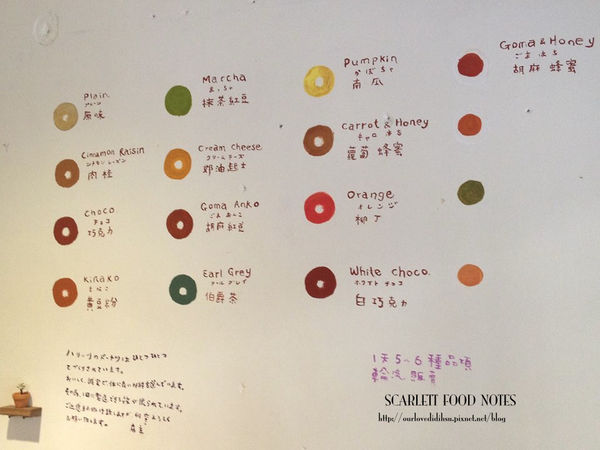 Plain
プレーン
原味
Cinnamon Raisin
シナモン レーズン
肉桂
Choco
チョコ
巧克力
Kinako
きなこ
黃豆粉
Marcha
まっちゃ
抹茶紅豆
Cream Cheese
クリームチーズ
奶油起士
Goma Anko
ごま あんこ
胡麻紅豆
Earl Grey
アールグレイ
伯爵茶
Pumpkin
かぼちゃ
南瓜
Carrot & Honey
蘿蔔 蜂蜜
Orange
オレンジ
柳丁
White Choco.
ホワイト チョコ
白巧克力
Goma & Honey
ごま はち
胡麻 蜂蜜
ひとつひとつ
てづくりされています。
1天5~6種品項
輪流販賣
SCARLETT FOOD NOTES
http://ourlovedidihsu.pixnet.net/blog